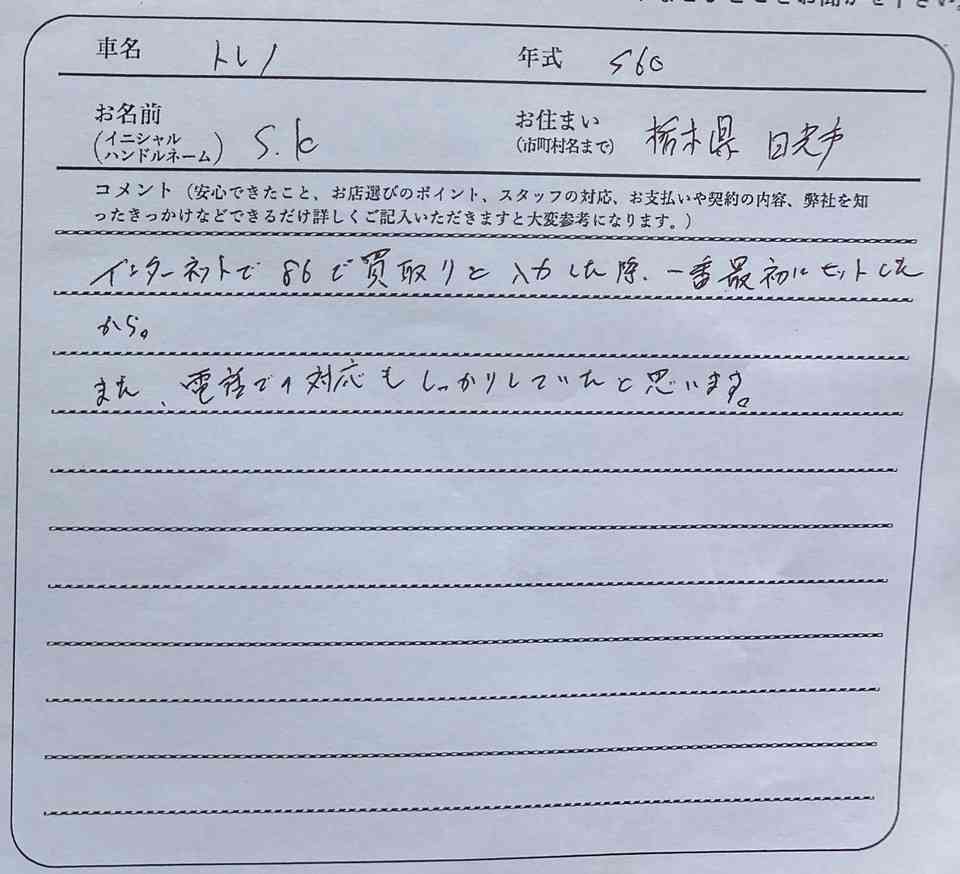 お聞かせ下さい
車名 トレノ 年式 S60
お名前 (イニシャル ハンドルネーム) S.K お住まい (市町村名まで) 栃木県 日光市
コメント（安心できたこと、お店選びのポイント、スタッフの対応、お支払いや契約の内容、弊社を知
ったきっかけなどできるだけ詳しくご記入いただきますと大変参考になります。）
インターネットで86で買取りと入力した際、一番最初にヒットした
から。
また、電話での対応もしっかりしていたと思います。